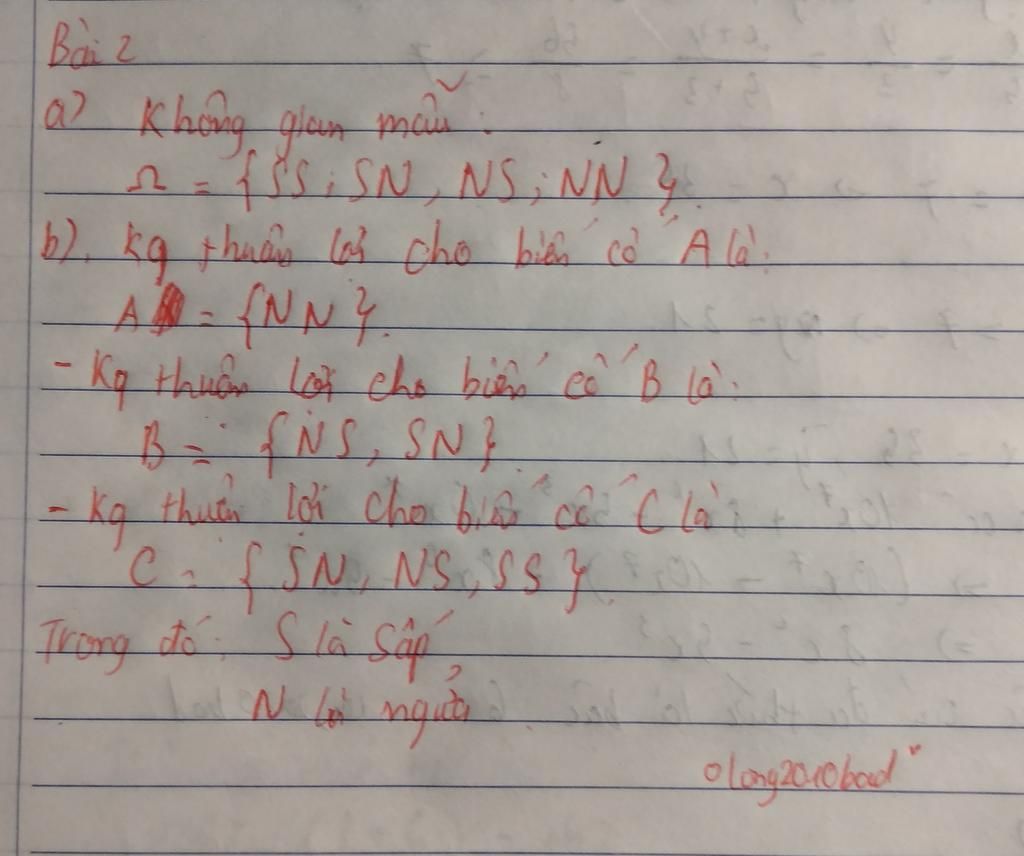 Bài 2
a) Không gian mẫu:
Ω = {SS; SN, NS; NN}.
b). Kq thuận lợi cho biến cố A là:
A = {NN}.
- Kq thuận lợi cho biến cố B là:
B = {NS, SN}
- Kq thuận lợi cho biến cố C là
C = {SN, NS, SS}
Trong đó: S là Sấp,
N là ngửa
olong2010bad